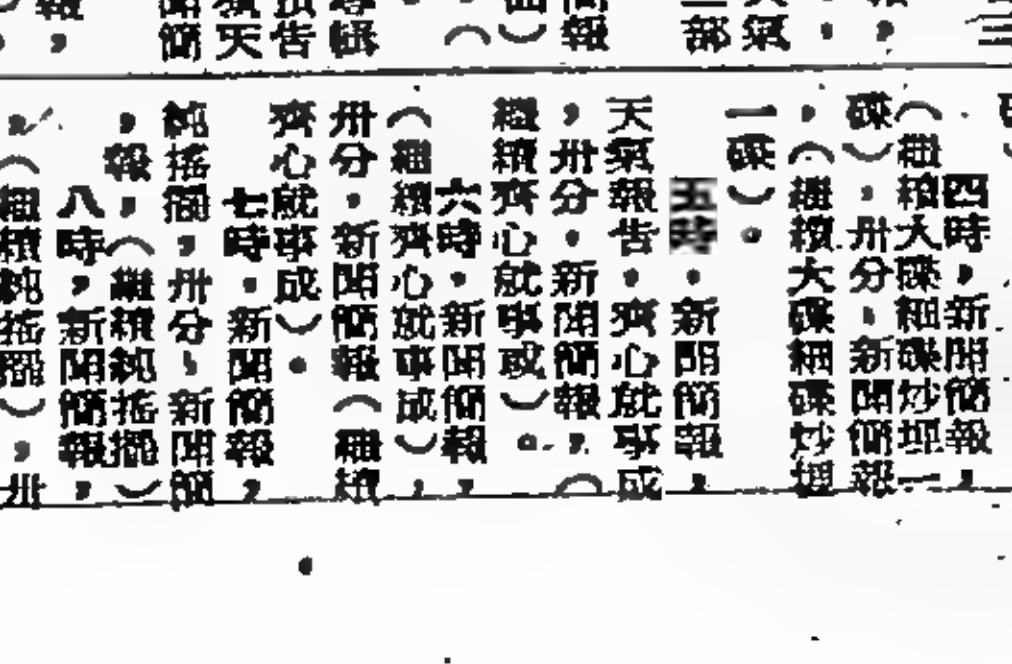 四時,新聞簡報,
(繼續大碟細碟炒埋一
碟),卅分,新聞簡報
,(繼續大碟細碟炒埋
一碟)。
五時,新聞簡報,
天氣報告,齊心就事成
,卅分,新聞簡報,(
繼續齊心就事成)。
六時,新聞簡報,
(繼續齊心就事成),
卅分,新聞簡報(繼續
齊心就事成)。
七時,新聞簡報,
純搖擺,卅分,新聞簡
報,(繼續純搖擺)
八時,新聞簡報,
(繼續純搖擺),卅